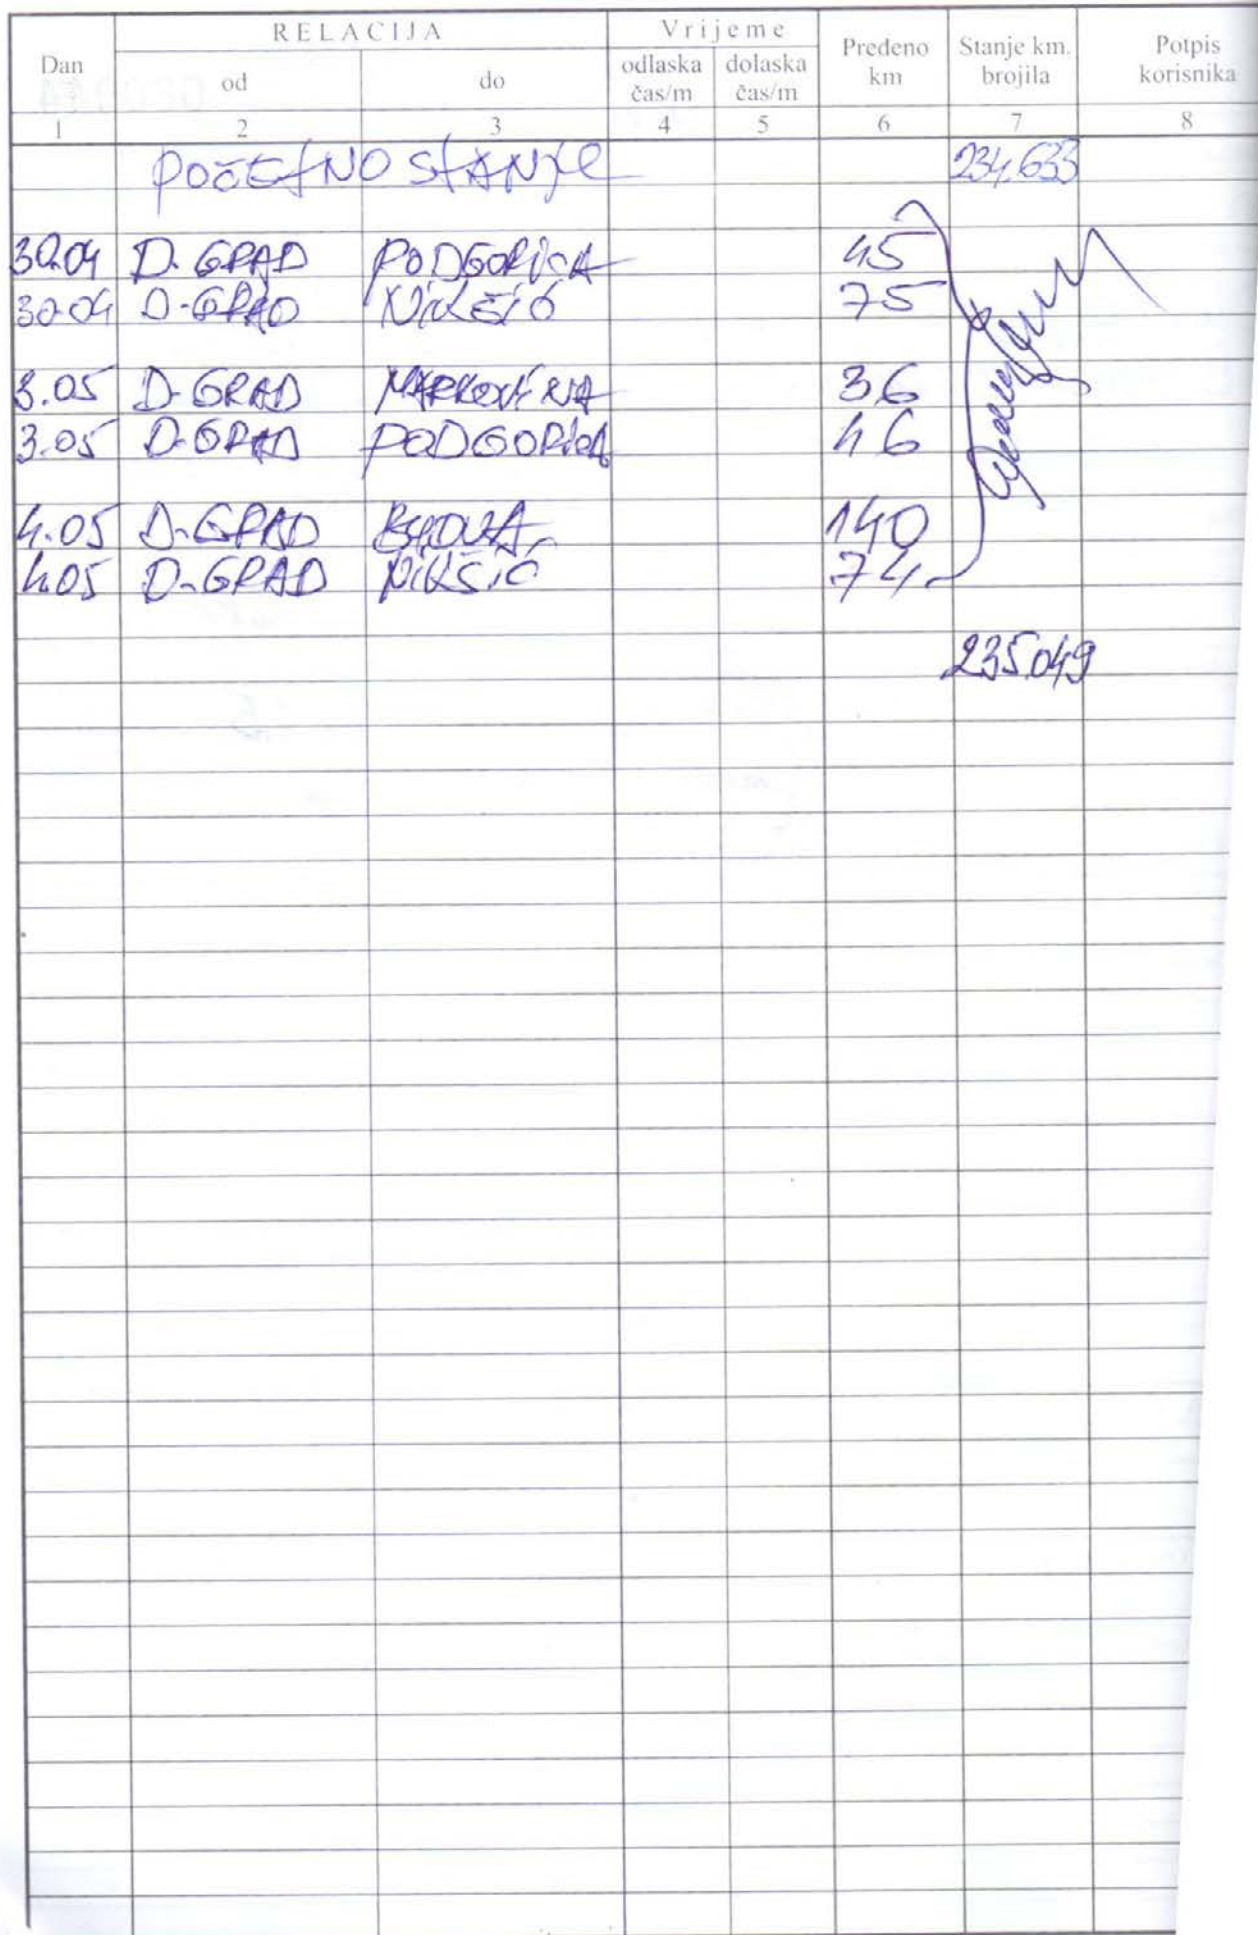 RELACIJA Vrijeme
Dan od do odlaska čas/m dolaska čas/m Pređeno km Stanje km. brojila Potpis korisnika
1 2 3 4 5 6 7 8
POČETNO STANJE 234.633
30.04 D. GRAD PODGORICA 45
30.04 D-GRAD NIKŠIĆ 75
3.05 D-GRAD MARKOVINA 36
3.05 D-GRAD PODGORICA 46
4.05 D-GRAD BUDVA 140
4.05 D-GRAD NIKŠIĆ 74
235.049